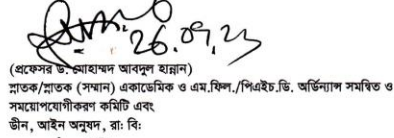 26.09.23
(প্রফেসর ড. মোহাম্মদ আবদুল হান্নান)
স্নাতক/স্নাতক (সম্মান) একাডেমিক ও এম.ফিল./পিএইচ.ডি. অর্ডিন্যান্স সমন্বিত ও
সময়োপযোগীকরণ কমিটি এবং
ডীন, আইন অনুষদ, রাঃ বিঃ